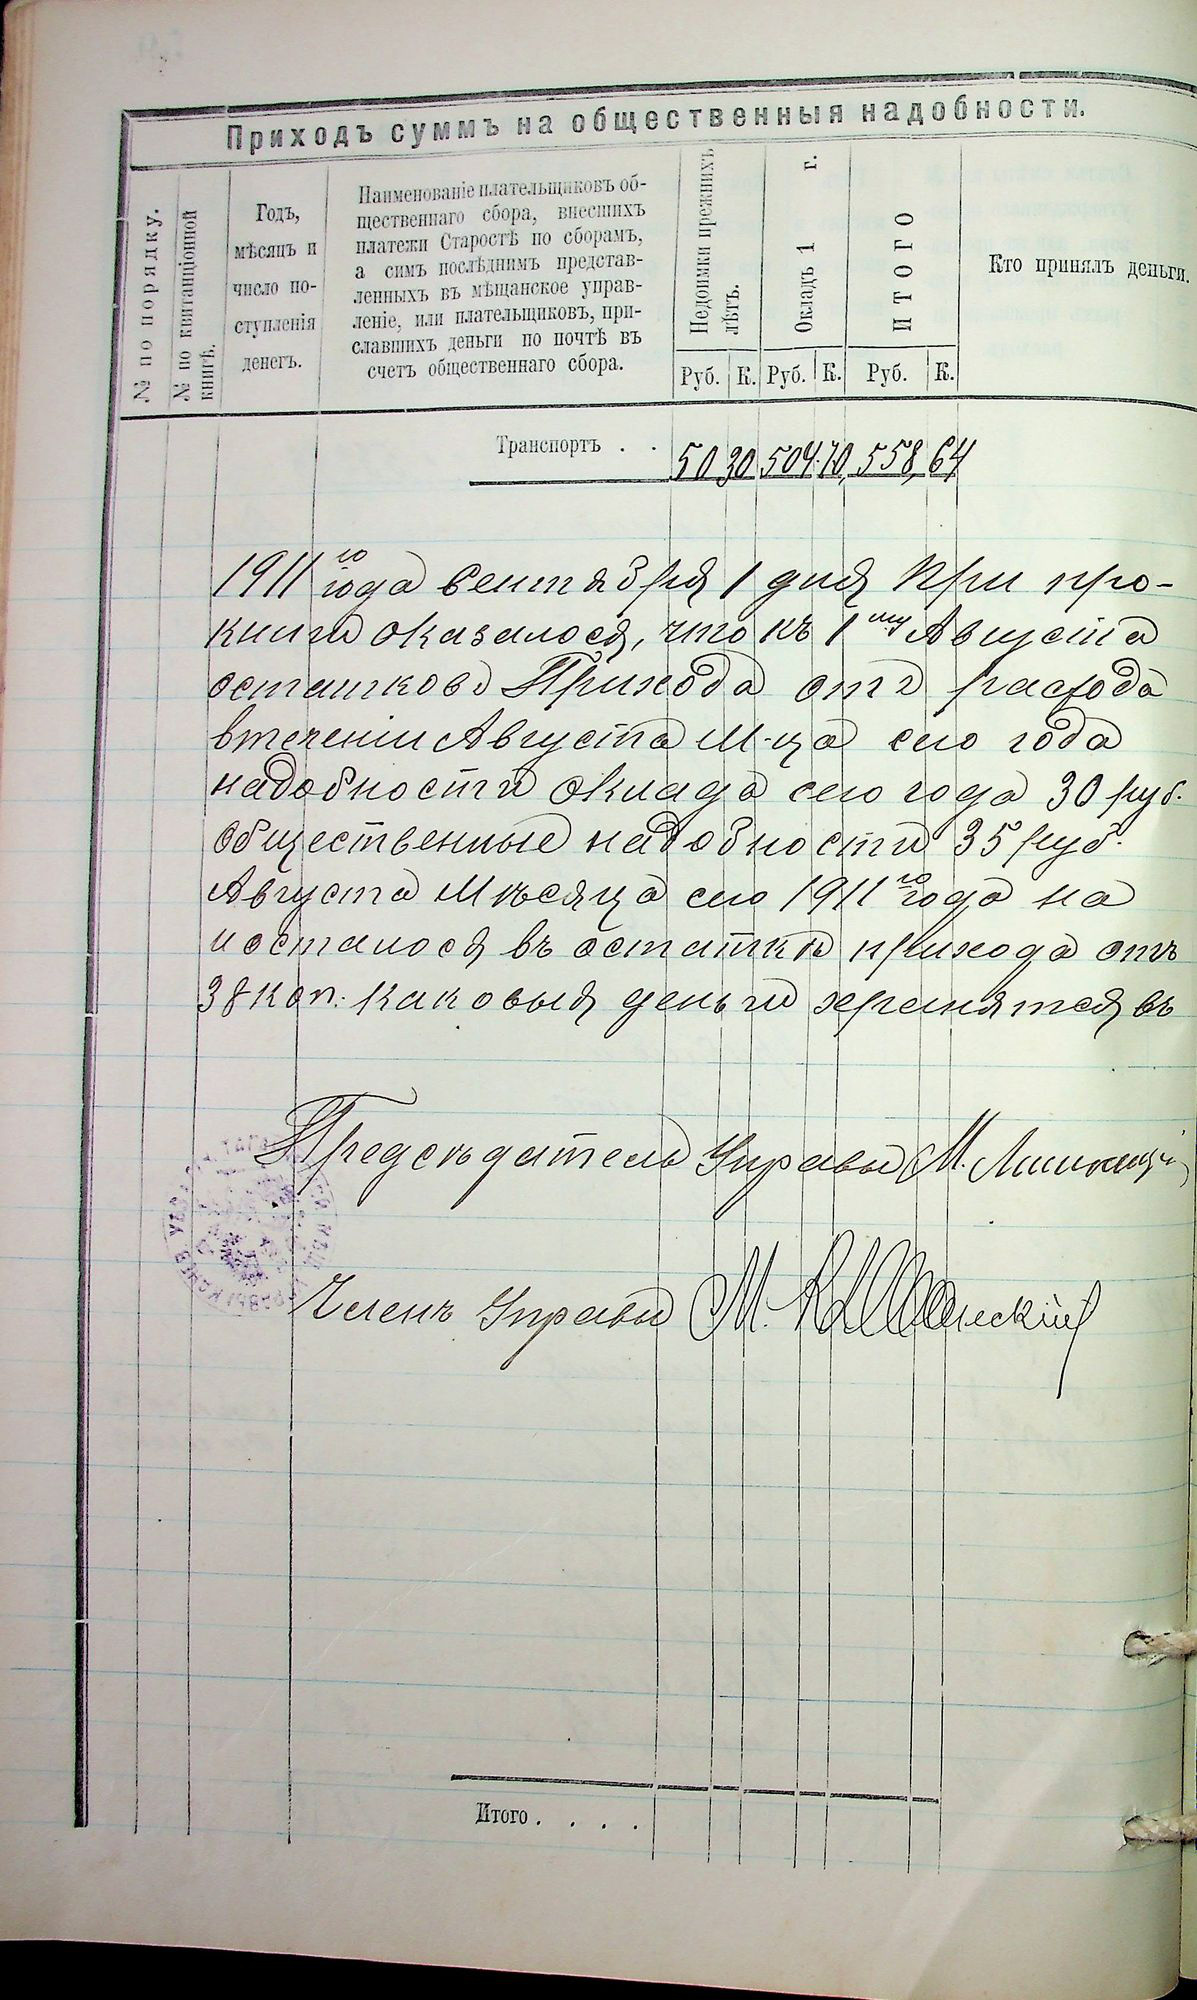 Приходъ суммъ на общественныя надобности.
№ по порядку.
№ по квитанціонной
книгѣ.
Годъ,
мѣсяцъ и
число по-
ступленія
денегъ.
Наименованіе плательщиковъ об-
щественнаго сбора, внесшихъ
платежи Старостѣ по сборамъ,
а симъ послѣднимъ представ-
ленныхъ въ мѣщанское управ-
леніе, или плательщиковъ, при-
славшихъ деньги по почтѣ въ
счетъ общественнаго сбора.
Недоимки прежнихъ
лѣтъ.
Окладъ 1 г.
ИТОГО
Кто принялъ деньги.
Руб. К. Руб. К. Руб. К.
Транспортъ . . 50 30 504 70 558, 64
1911го года Сентября 1 дня При про-
книги оказалося, что къ 1му Августа
остатковъ Прихода отъ расхода
втеченіи Августа М-ца сего года
надобности оклада сего года 30 руб.
общественные надобности 35 руб.
Августа Мѣсяца сего 1911го года на
и осталося въ остаткѣ прихода отъ
38 коп. каковыя деньги хранятся въ
Предсѣдатель Управы М.
Членъ Управы М.
Итого . . . .